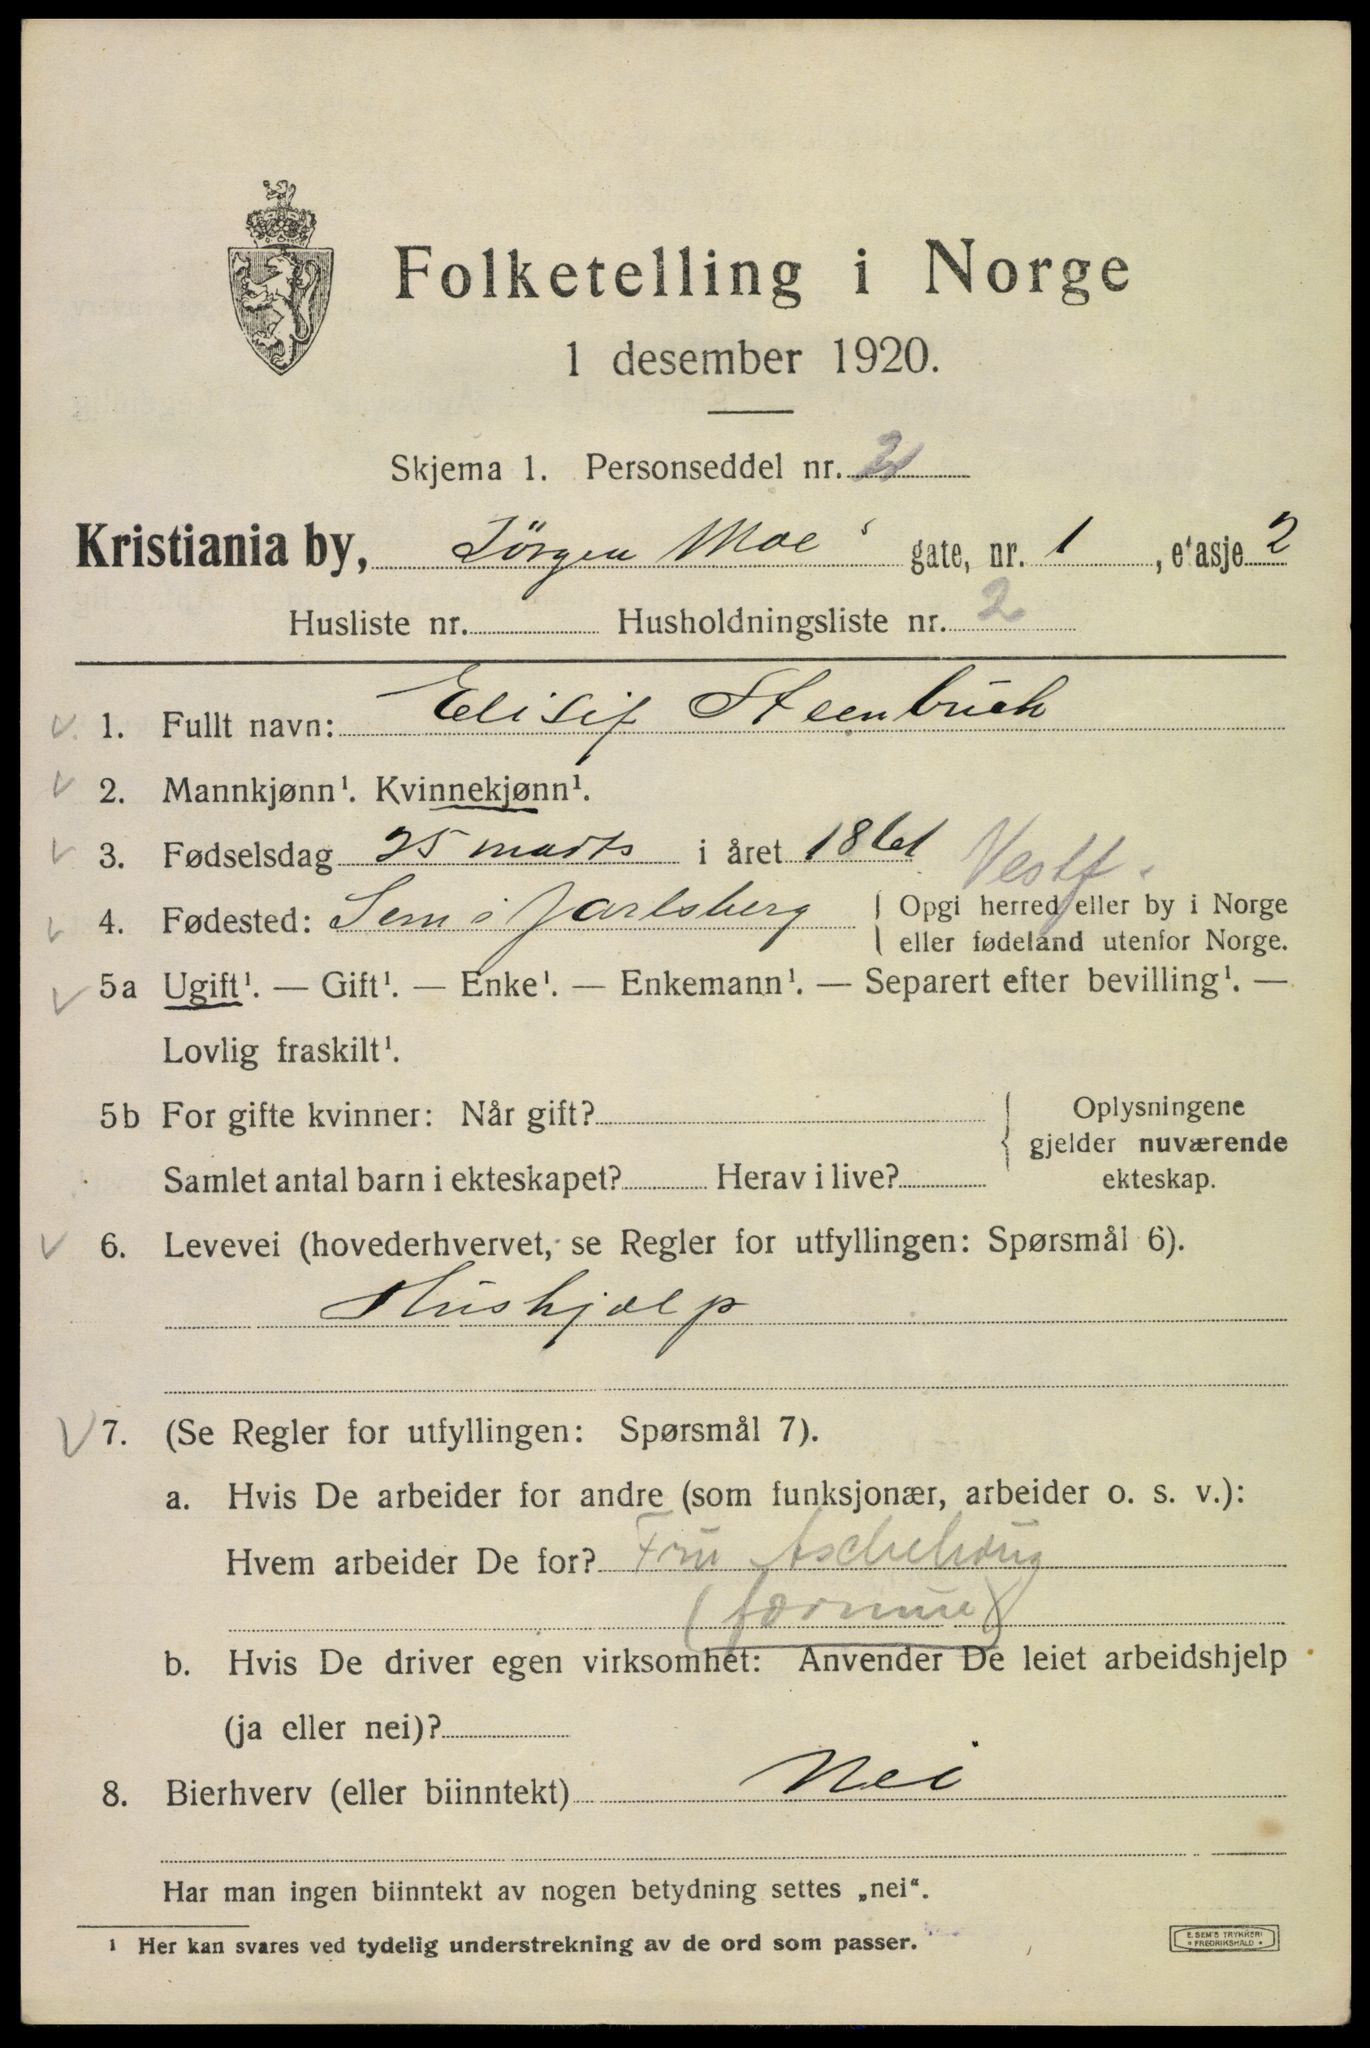 Folketelling i Norge
1 desember 1920.
Skjema 1. Personseddel nr. 2
Kristiania by, Jörgen Moe's gate, nr. 1, etasje 2
Husliste nr. Husholdningsliste nr. 2
1. Fullt navn: Elisif Steenbuch
2. Mannkjønn¹. Kvinnekjønn¹.
3. Fødselsdag 25 marts i året 1861 Vestf.
4. Fødested: Sem i Jarlsberg { Opgi herred eller by i Norge
eller fødeland utenfor Norge.
5a Ugift¹. — Gift¹. — Enke¹. — Enkemann¹. — Separert efter bevilling¹. —
Lovlig fraskilt¹.
5b For gifte kvinner: Når gift? { Oplysningene
gjelder nuværende
Samlet antal barn i ekteskapet? Herav i live? ekteskap.
6. Levevei (hovederhvervet, se Regler for utfyllingen: Spørsmål 6).
Hushjælp
7. (Se Regler for utfyllingen: Spørsmål 7).
a. Hvis De arbeider for andre (som funksjonær, arbeider o. s. v.):
Hvem arbeider De for? Fru Aschehoug
(formue)
b. Hvis De driver egen virksomhet: Anvender De leiet arbeidshjelp
(ja eller nei)?
8. Bierhverv (eller biinntekt) Nei
Har man ingen biinntekt av nogen betydning settes „nei“.
¹ Her kan svares ved tydelig understrekning av de ord som passer.
E. SEM'S TRYKKERI
* FREDRIKSHALD *